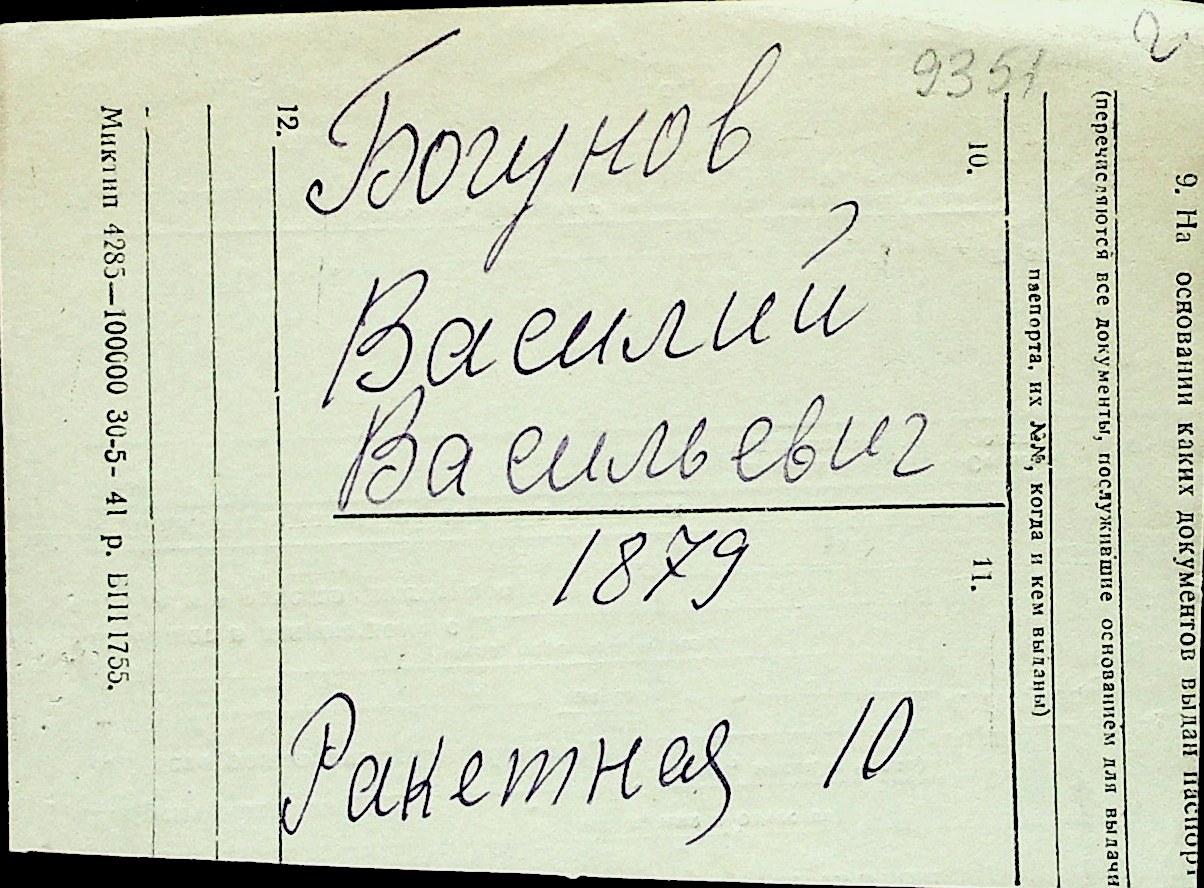 2
9351
Богунов
Василий
Васильевич
1879
Ракетная 10
9. На основании каких документов выдан паспорт
(перечисляются все документы, послужившие основанием для выдачи
паспорта, их №№, когда и кем выданы)
10.
11.
12.
Миктип 4285—100000 30-5- 41 р. БП11755.